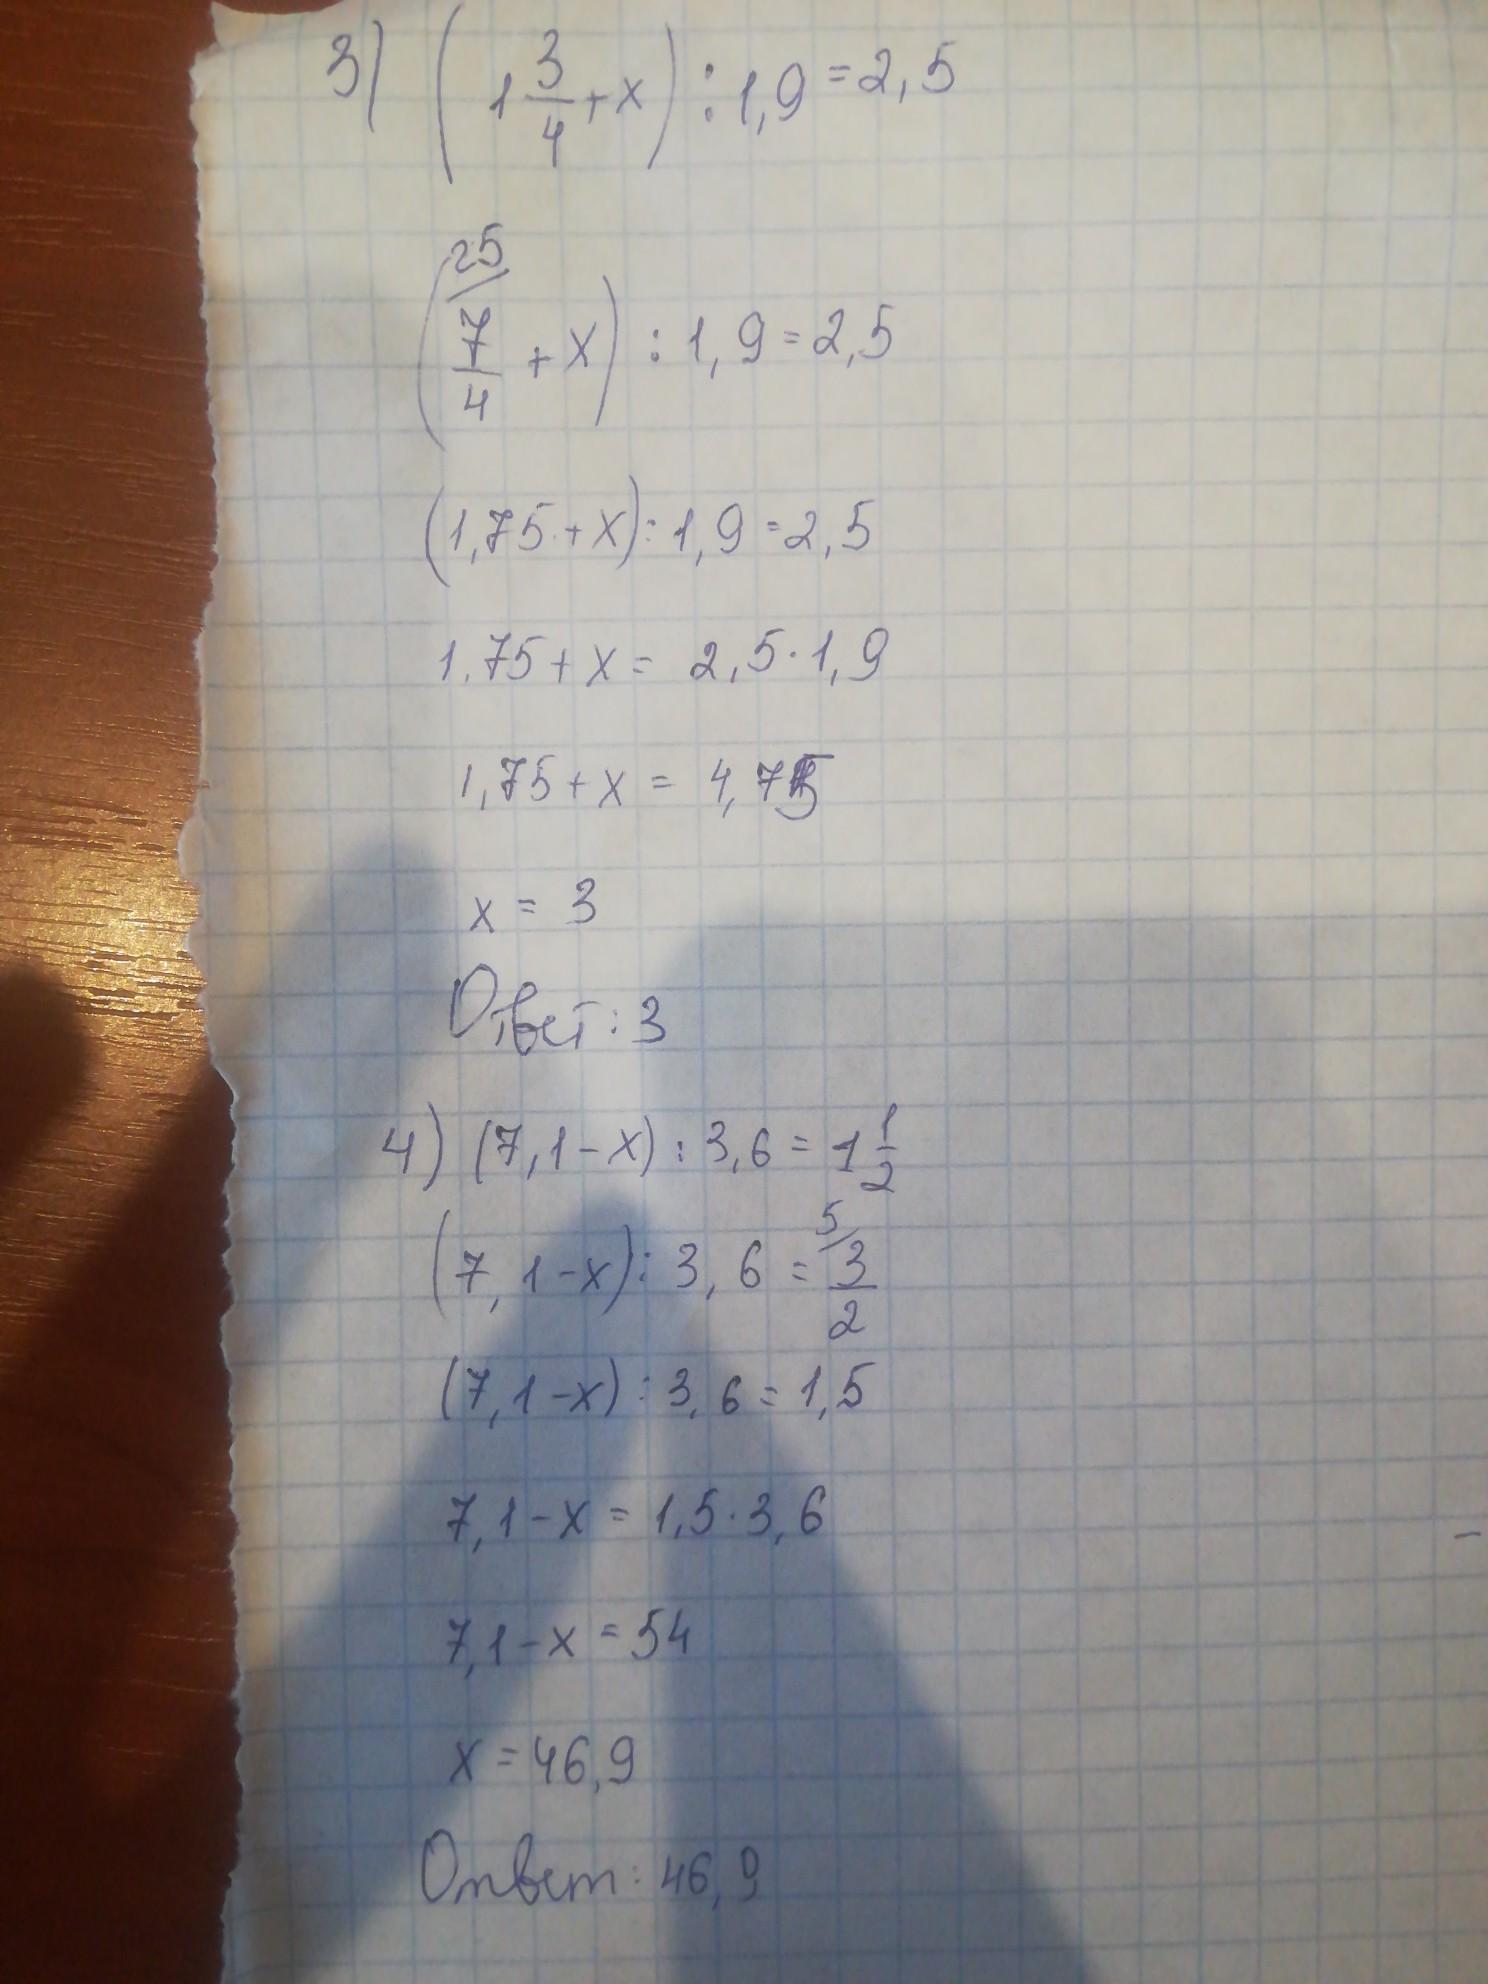 3) (1 3/4 + x) : 1,9 = 2,5
25
(7/4 + x) : 1,9 = 2,5
(1,75 + x) : 1,9 = 2,5
1,75 + x = 2,5 · 1,9
1,75 + x = 4,75
x = 3
Ответ: 3
4) (7,1 - x) : 3,6 = 1 1/2
5
(7,1 - x) : 3,6 = 3/2
(7,1 - x) : 3,6 = 1,5
7,1 - x = 1,5 · 3,6
7,1 - x = 54
x = 46,9
Ответ: 46,9